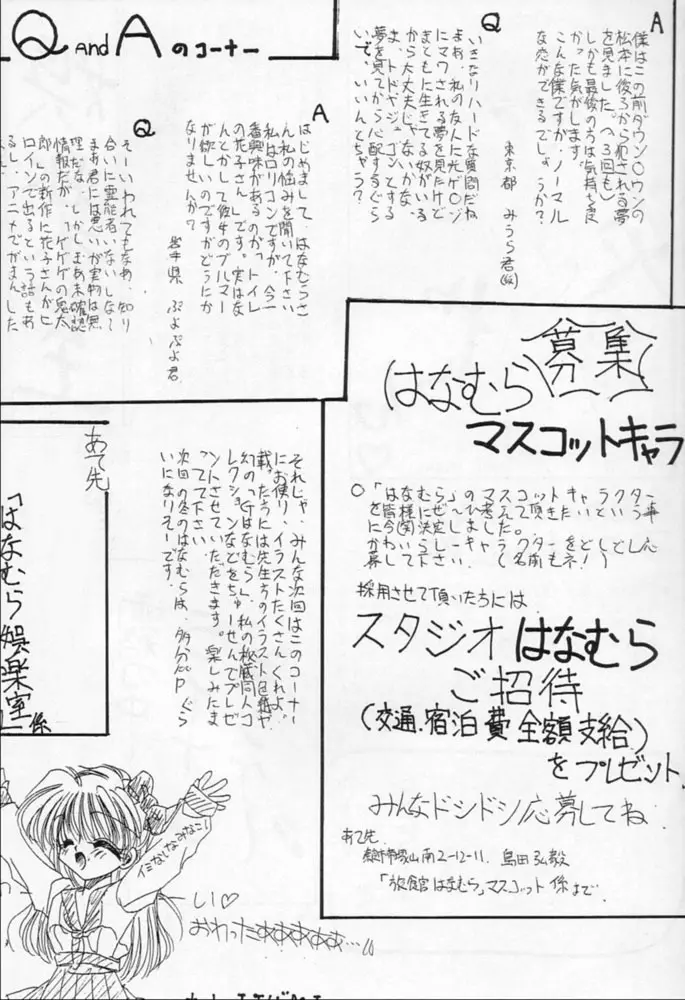 Q AND A のコーナー
A
僕はこの前ダウン○ウンの
松本に後ろから犯される夢
を見ました。(へ3回も)
しかも最後の方は気持ち良
かった気がします。
こんな僕ですが、ノーマル
な恋ができるでしょうか?
東京都 みうら君
Q
いきなりハードな質問だね
まあ、私の友人に光ゲ○ジ
にマワされる夢を見たけど
まともに生きてる奴がいる
から大丈夫じゃないかな。
ま、トドやジュゴンとする
夢を見てから心配するぐら
いで、いいんとちゃう?
A
はじめまして、はなむらさ
ん私の悩みを聞いて下さい
私はロリコンですが、今一
番興味があるのが「トイレ
の花子さん」です。実はな
んとかして彼女のブルマー
が欲しいのですがどうにか
なりませんか?
岩手県 ぷよぷよ君
Q
そーいわれてもなあ、知り
合いに霊能者いないしなて
まあ君には悪いが実物は無
理だな、しかしまあ未確認
情報だが、「ゲゲゲの鬼太
郎」の新作に花子さんがヒ
ロインで出るという話もあ
るし、アニメでがまんした
募集
はなむら
マスコットキャラ
○「はなむら」のマスコットキャラクター
を皆様にぜひ考えて頂きたいという事
に今(笑)決定〜しました。
かわいらしーキャラクターをどしどし応
募して下さい。(名前もネ!)
採用させて頂いた方には
スタジオはなむら
ご招待
(交通.宿泊費全額支給)
をプレゼント.
みんなドシドシ応募してね.
あて先
山南2-12-11. 島田弘毅
「旅館はなむら」マスコット係まで.
それじゃ、みんな次回はこのコーナー
にお便り、イラストたくさんくれよ。
載った方には先生方のイラスト色紙や
幻の「Gはなむら」、私の秘蔵同人コ
レクションなどをちゅーせんでプレゼ
ントさせていただきます。楽しみたま
ってて下さい。
次回の冬のはなむらは、多分
いになりそーです。
あて先
「はなむら娯楽室」係
しい♡
おわったああああああ…